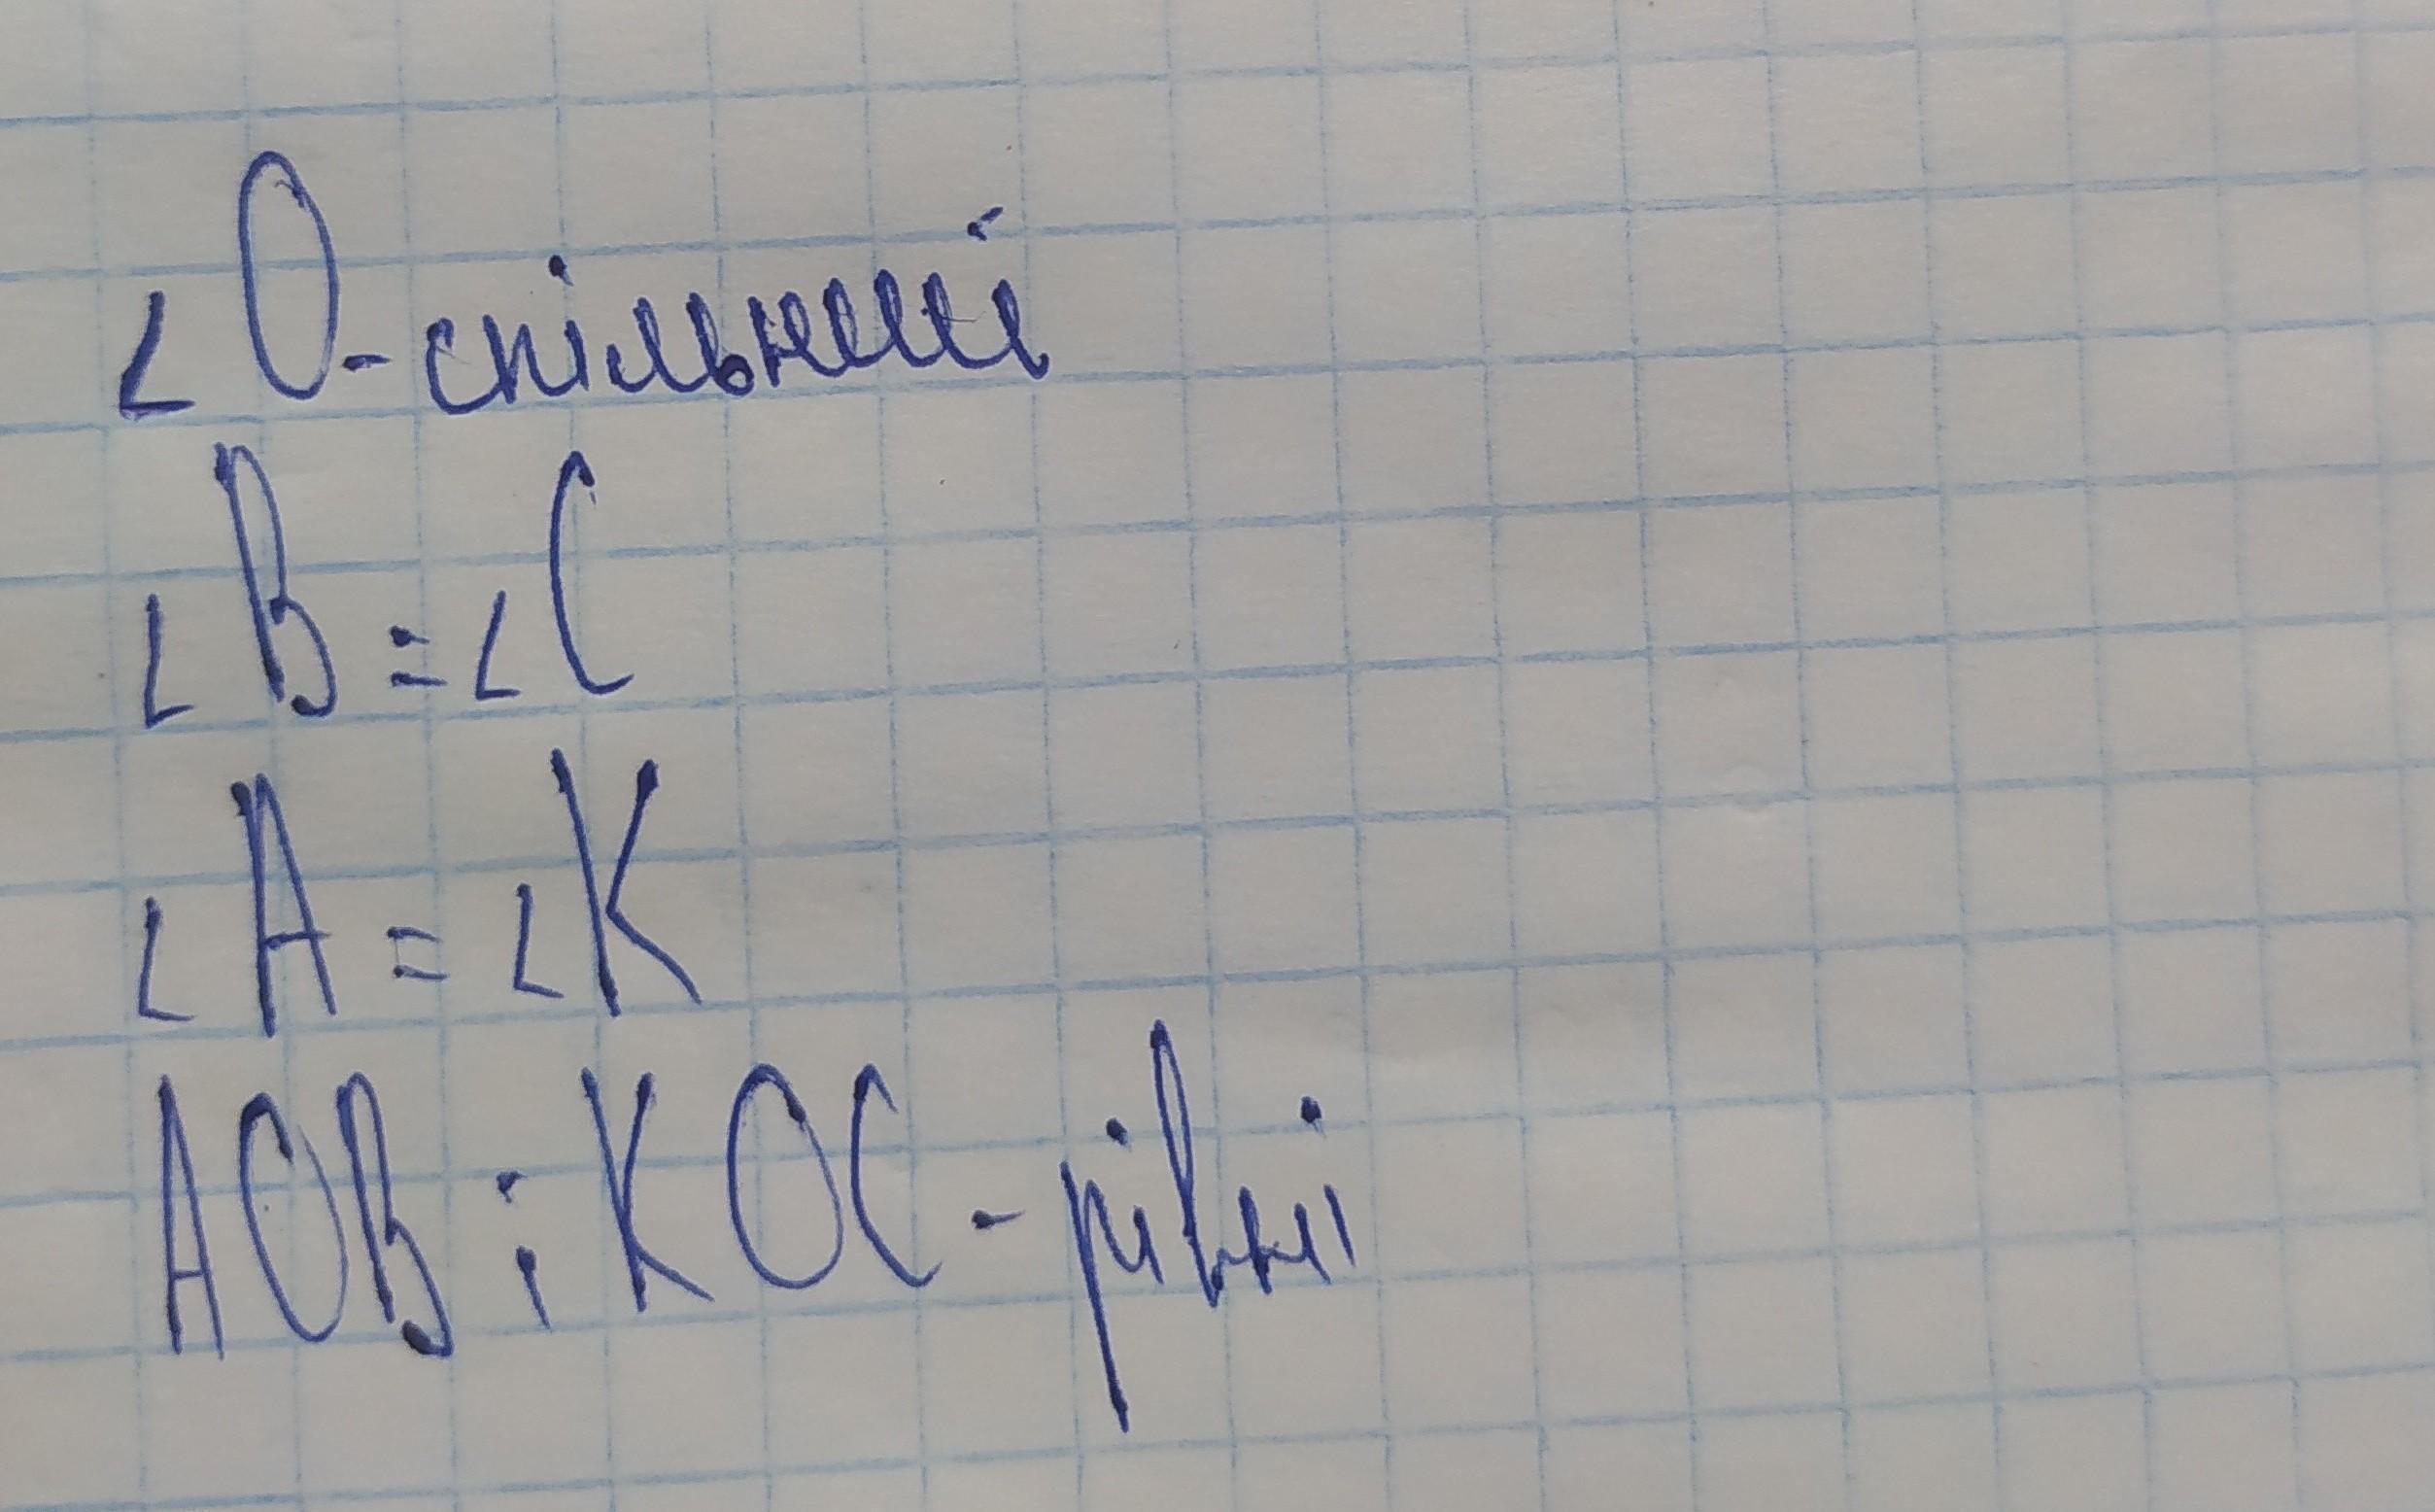 ∠O-спільний
∠B=∠C
∠A=∠K
AOB і KOC-рівні